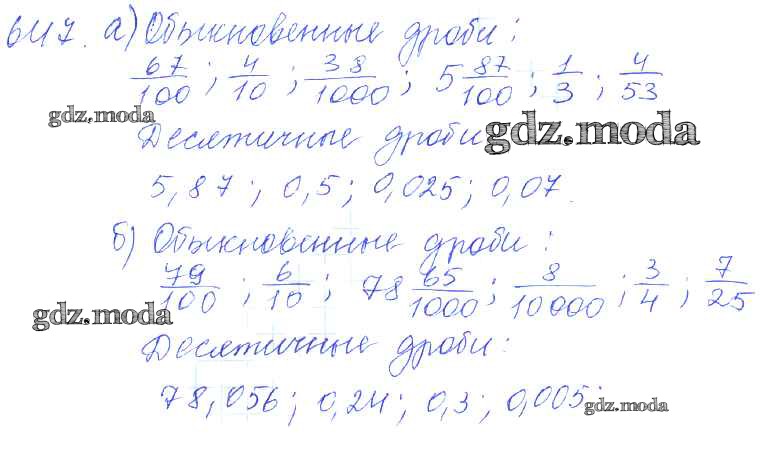 647. а) Обыкновенные дроби:
67/100; 4/10; 38/1000; 5 87/100; 1/3; 4/53
gdz.moda
Десятичные дроби gdz.moda
5,87; 0,5; 0,025; 0,07.
б) Обыкновенные дроби:
79/100; 6/10; 78 65/1000; 8/10000; 3/4; 7/25
gdz.moda
Десятичные дроби:
78,056; 0,24; 0,3; 0,005.
gdz.moda